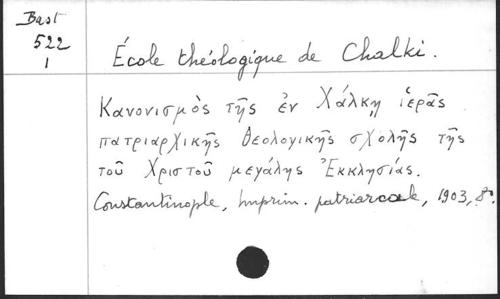 Bast
522
1
École théologique de Chalki.
Κανονισμὸς τῆς ἐν Χάλκῃ ἱερᾶς
πατριαρχικῆς θεολογικῆς σχολῆς τῆς
τοῦ Χριστοῦ μεγάλης Ἐκκλησίας.
Constantinople, Imprim. patriarcale, 1903, 8º.